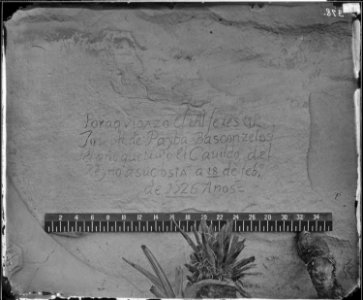 Por aqui pazo el Alferes Dn
Joseph de Payba Basconzelos
el año que trujo el Cavildo del
Reyno a su costa a 18 de feb.
de 1726 Años
2 4 6 8 10 12 14 16 18 20 22 24 26 28 30 32 34